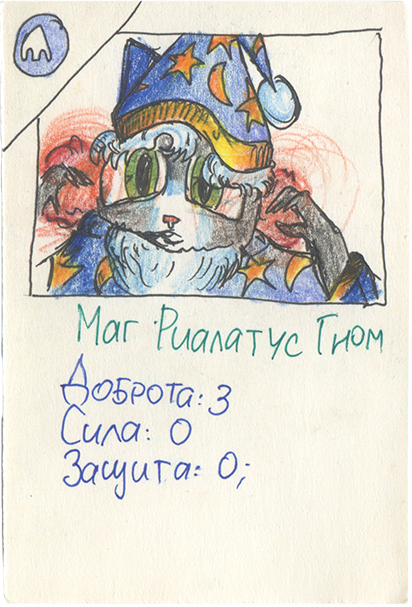 Маг Риалатус Гном
Доброта: 3
Сила: 0
Защита: 0;